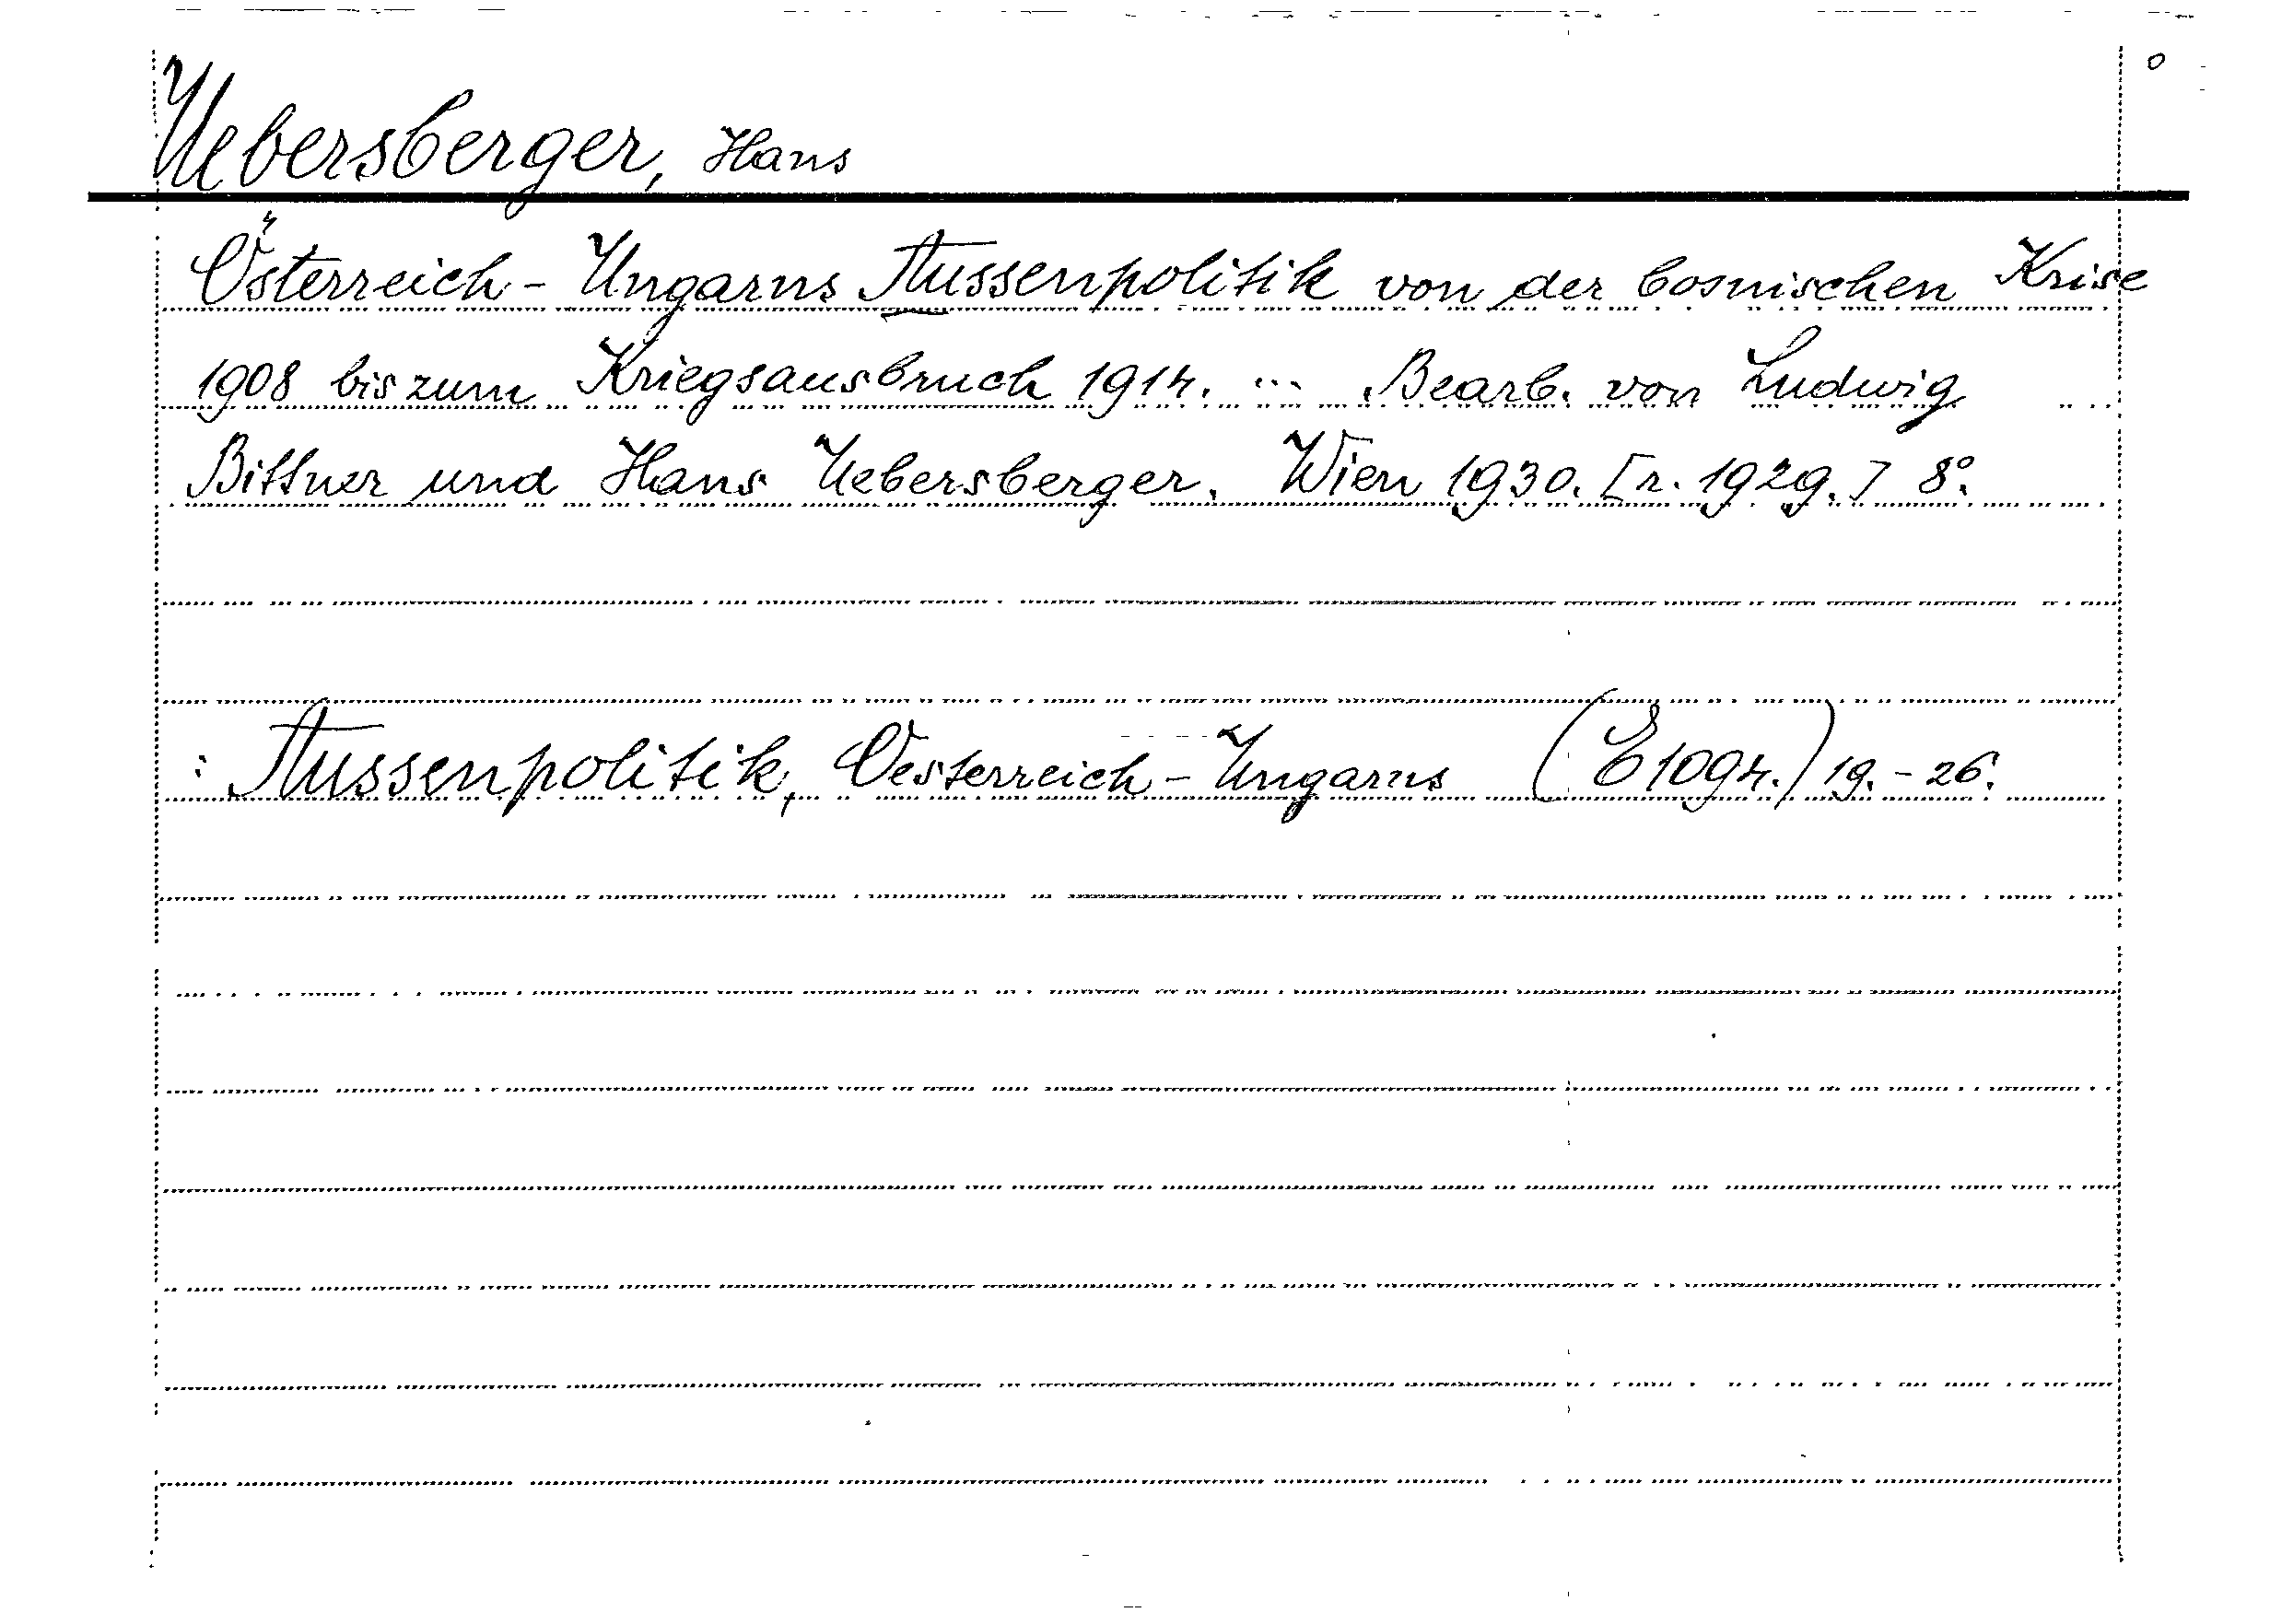 Uebersberger, Hans
Österreich-Ungarns Aussenpolitik von der bosnischen Krise
1908 bis zum Kriegsausbruch 1914. ... Bearb. von Ludwig
Bittner und Hans Uebersberger. Wien 1930. [r. 1929.] 8°.
: Aussenpolitik, Oesterreich-Ungarns (E 1094.) 19.-26.